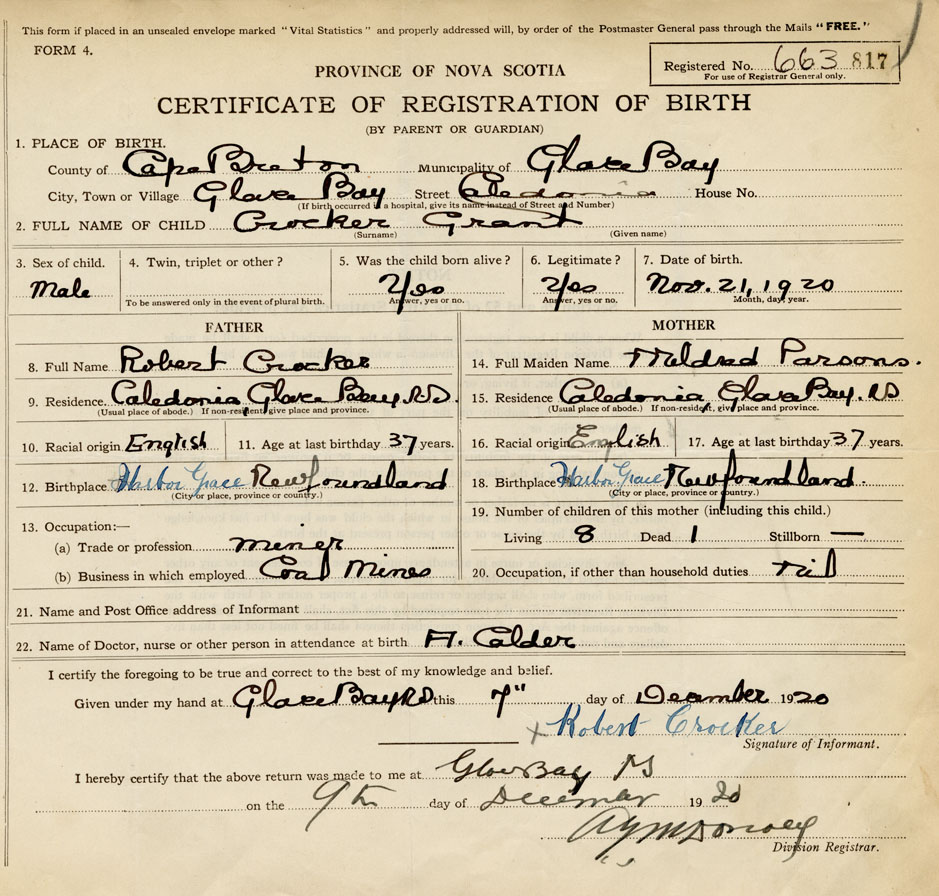 This form if placed in an unsealed envelope marked "Vital Statistics" and properly addressed will, by order of the Postmaster General pass through the Mails "FREE."
FORM 4.
Registered No. 663 817
For use of Registrar General only.
PROVINCE OF NOVA SCOTIA
CERTIFICATE OF REGISTRATION OF BIRTH
(BY PARENT OR GUARDIAN)
1. PLACE OF BIRTH.
County of Cape Breton Municipality of Glace Bay
City, Town or Village Glace Bay Street Caledonia House No.
(If birth occurred in a hospital, give its name instead of Street and Number)
2. FULL NAME OF CHILD Crocker Grant
(Surname) (Given name)
3. Sex of child. 4. Twin, triplet or other? 5. Was the child born alive? 6. Legitimate? 7. Date of birth.
Male Yes Yes Nov. 21, 1920
To be answered only in the event of plural birth. Answer, yes or no. Answer, yes or no. Month, day, year.
FATHER MOTHER
8. Full Name Robert Crocker 14. Full Maiden Name Mildred Parsons.
9. Residence. Caledonia Glace Bay. N.S. 15. Residence Caledonia Glace Bay. NS
(Usual place of abode.) If non-resident, give place and province. (Usual place of abode.) If non-resident, give place and province.
10. Racial origin English 11. Age at last birthday 37 years. 16. Racial origin English 17. Age at last birthday 37 years.
12. Birthplace Harbor Grace Newfoundland 18. Birthplace Harbor Grace Newfoundland.
(City or place, province or country.) (City or place, province or country.)
13. Occupation:— 19. Number of children of this mother (including this child.)
(a) Trade or profession miner Living 8 Dead 1 Stillborn —
(b) Business in which employed Coal Mines 20. Occupation, if other than household duties
21. Name and Post Office address of Informant
22. Name of Doctor, nurse or other person in attendance at birth A. Calder
I certify the foregoing to be true and correct to the best of my knowledge and belief.
Given under my hand at Glace Bay NS this 7" day of December 1920
x Robert Crocker
Signature of Informant.
I hereby certify that the above return was made to me at Glace Bay NS
on the 9th day of December 1920
Division Registrar.